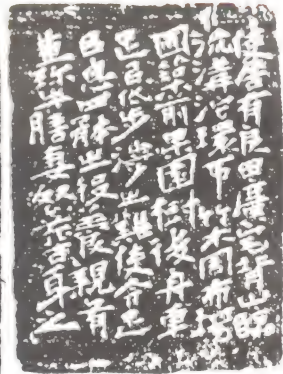 使居有良田廣宅背山臨
流溝沼環帀竹木周布場
圃築前果園樹後舟車
足以代步涉之難使令足
以息四體之役養親有
兼珍之膳妻奴無苦身之